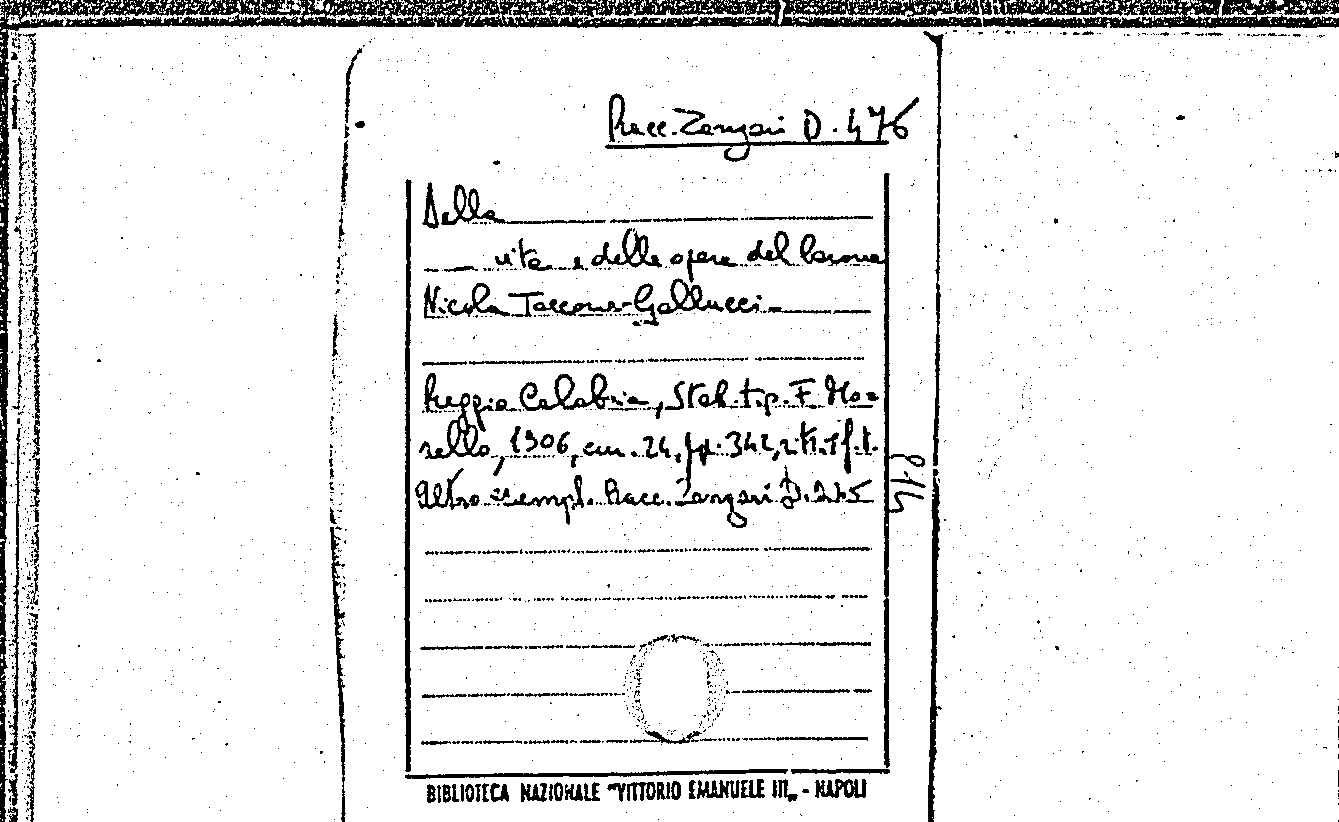 Racc. Zangari D. 476
Della
vita e delle opere del barone
Nicola Taccone-Gallucci
Reggio Calabria, Stab. tip. F. Mo=
rello, 1906, cm. 24, pp. 342,
Altro esempl. Racc. Zangari D. 245
BIBLIOTECA NAZIONALE "VITTORIO EMANUELE III„ - NAPOLI